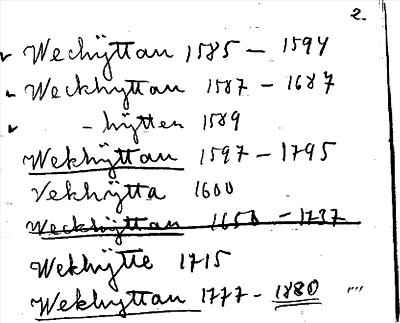 2.
Wechÿttan 1585 – 1594
Weckhyttan 1587 – 1687
– hÿtten 1589
Wekhÿttan 1597 – 1795
Vekhÿtta 1600
Weckhÿttan 1650 – 1737
Wekhÿtte 1715
Wekhyttan 1777 – 1880 ""